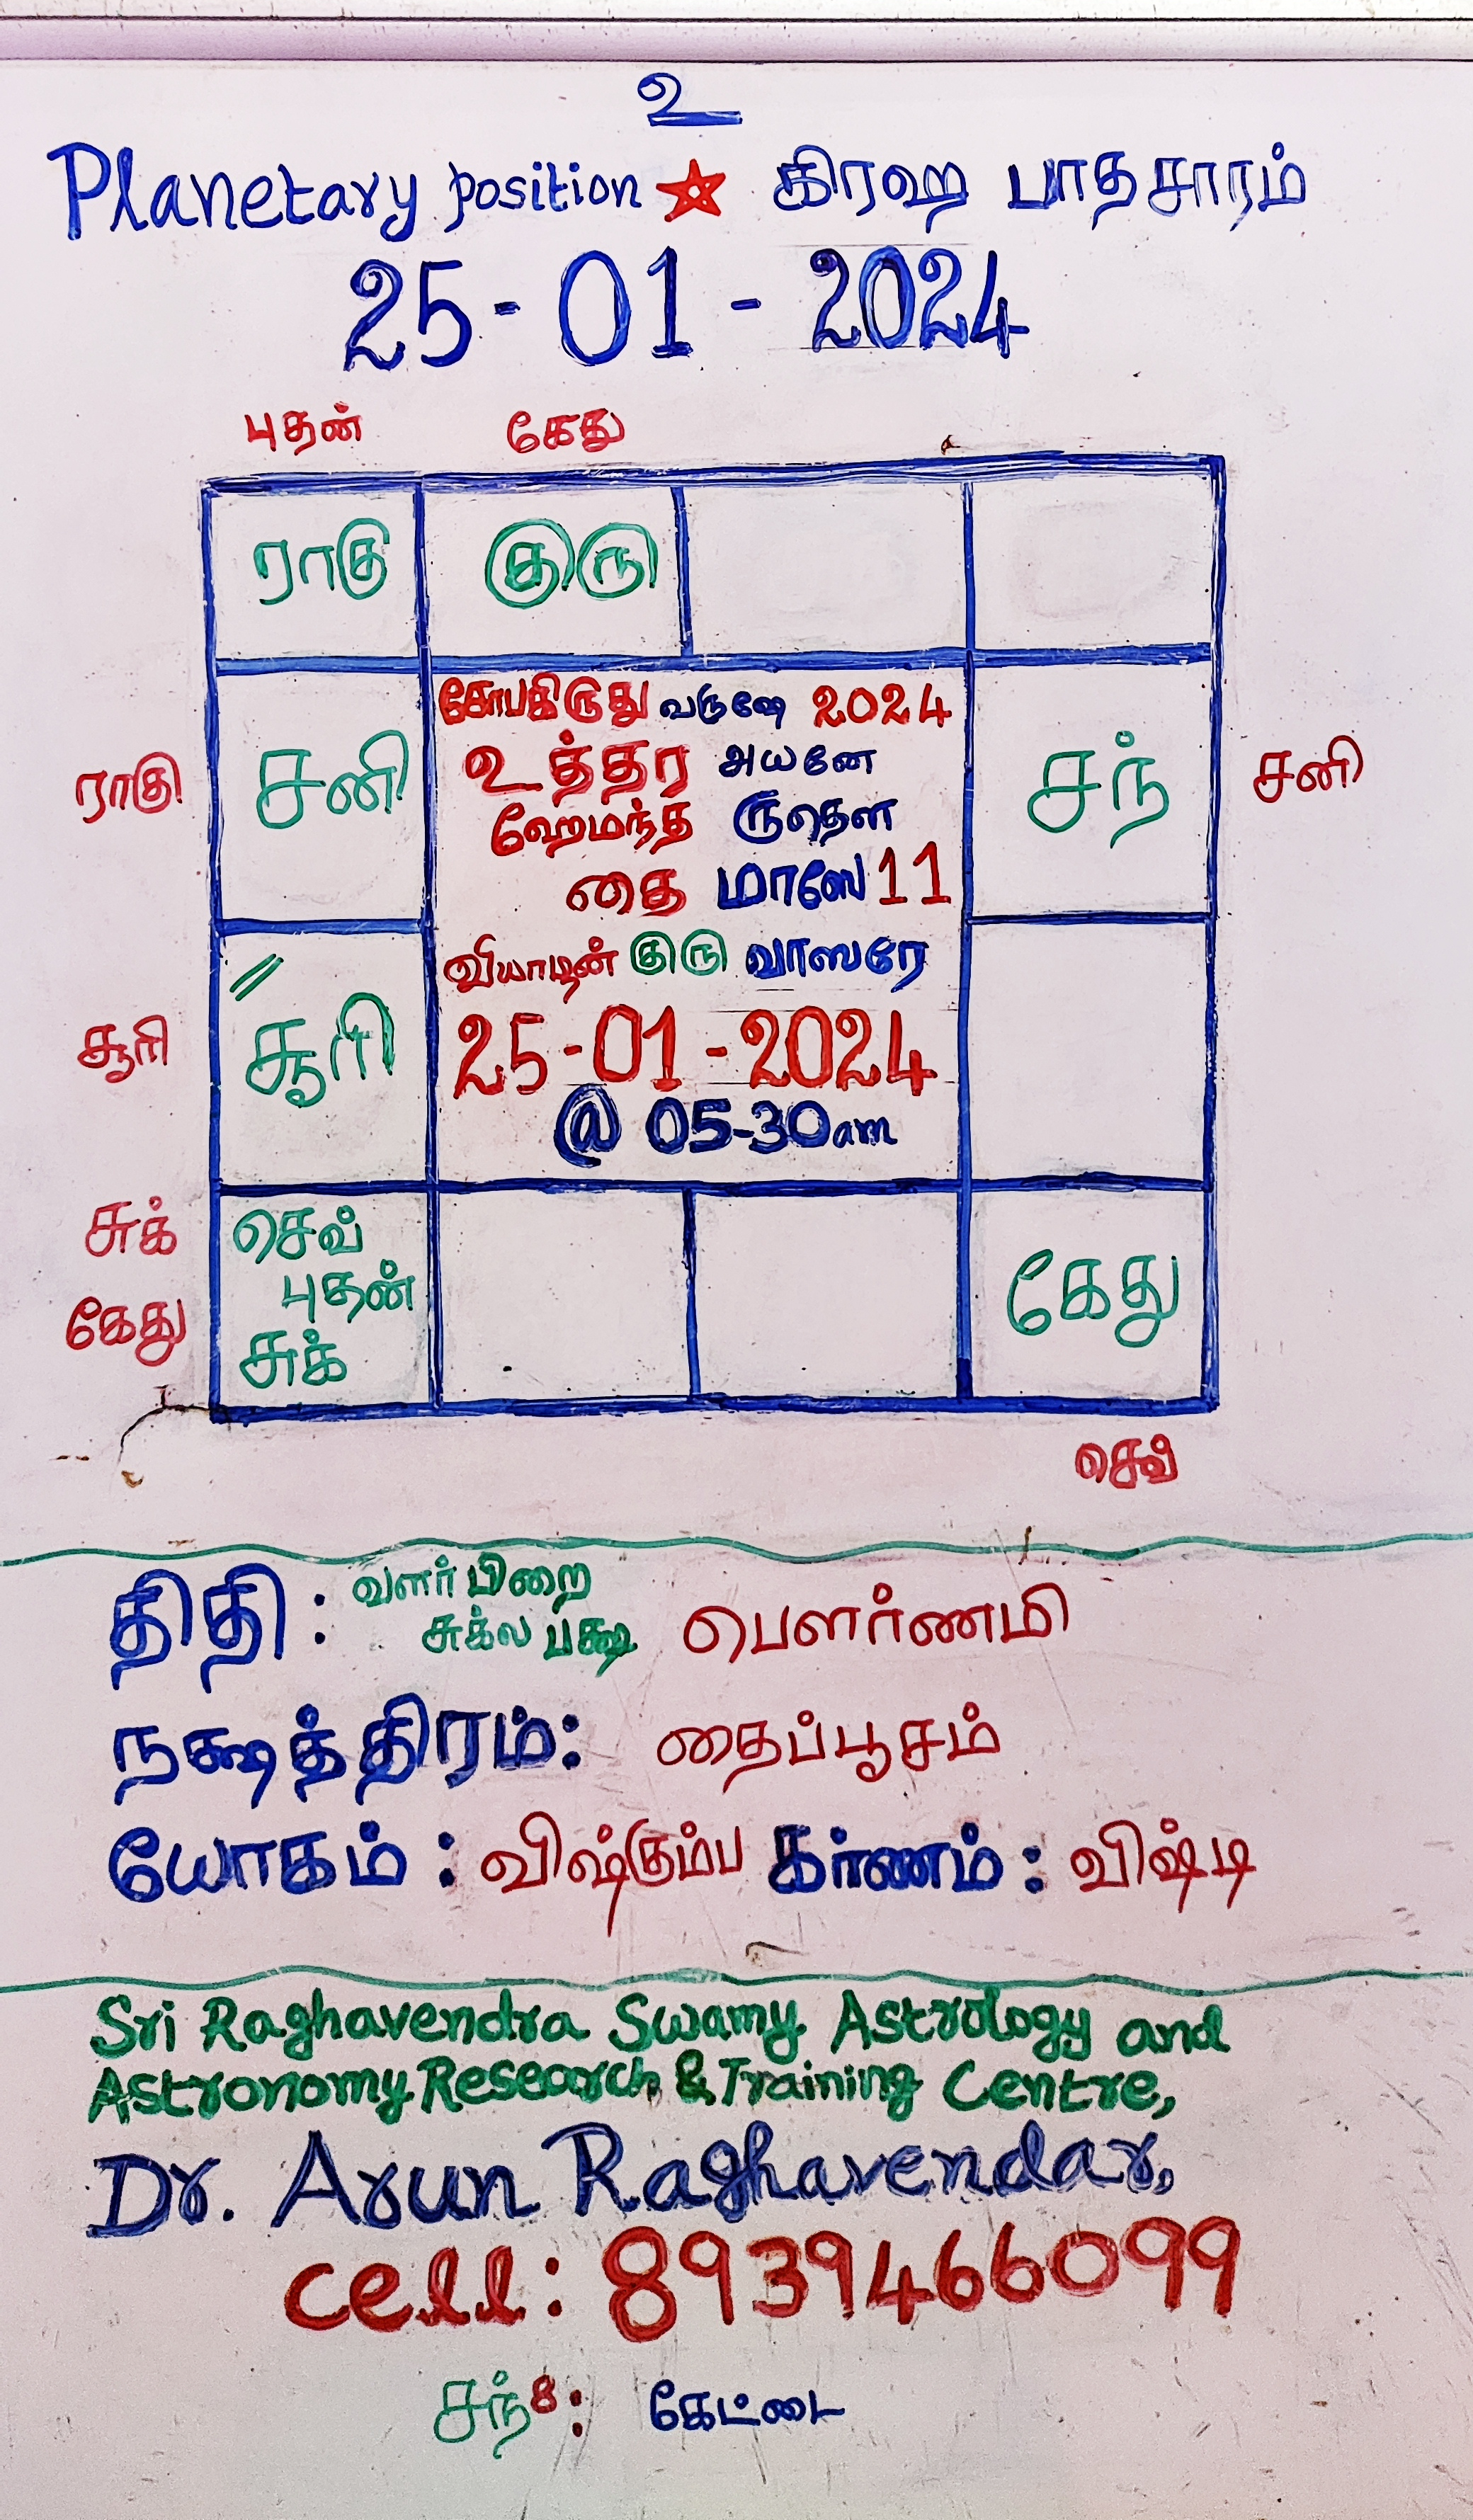 உ
Planetary position ★ கிரஹ பாதசாரம்
25-01-2024
புதன் கேது
ராகு குரு
கோபகிருது வருஷே 2024
உத்தர அயனே
ராகு சனி சந் சனி
ஹேமந்த ருதௌ
தை மாஸே 11
வியாழன் குரு வாஸரே
சூரி சூரி
25-01-2024
@ 05-30am
சுக் செவ்
புதன் கேது
கேது சுக்
செவ்
திதி: வளர்பிறை
சுக்ல பக்ஷ பௌர்ணமி
நக்ஷத்திரம்: தைப்பூசம்
யோகம்: விஷ்கும்ப கர்ணம்: விஷ்டி
Sri Raghavendra Swamy Astrology and
Astronomy Research & Training Centre,
Dr. Arun Raghavendar,
cell: 8939466099
சந்8: கேட்டை